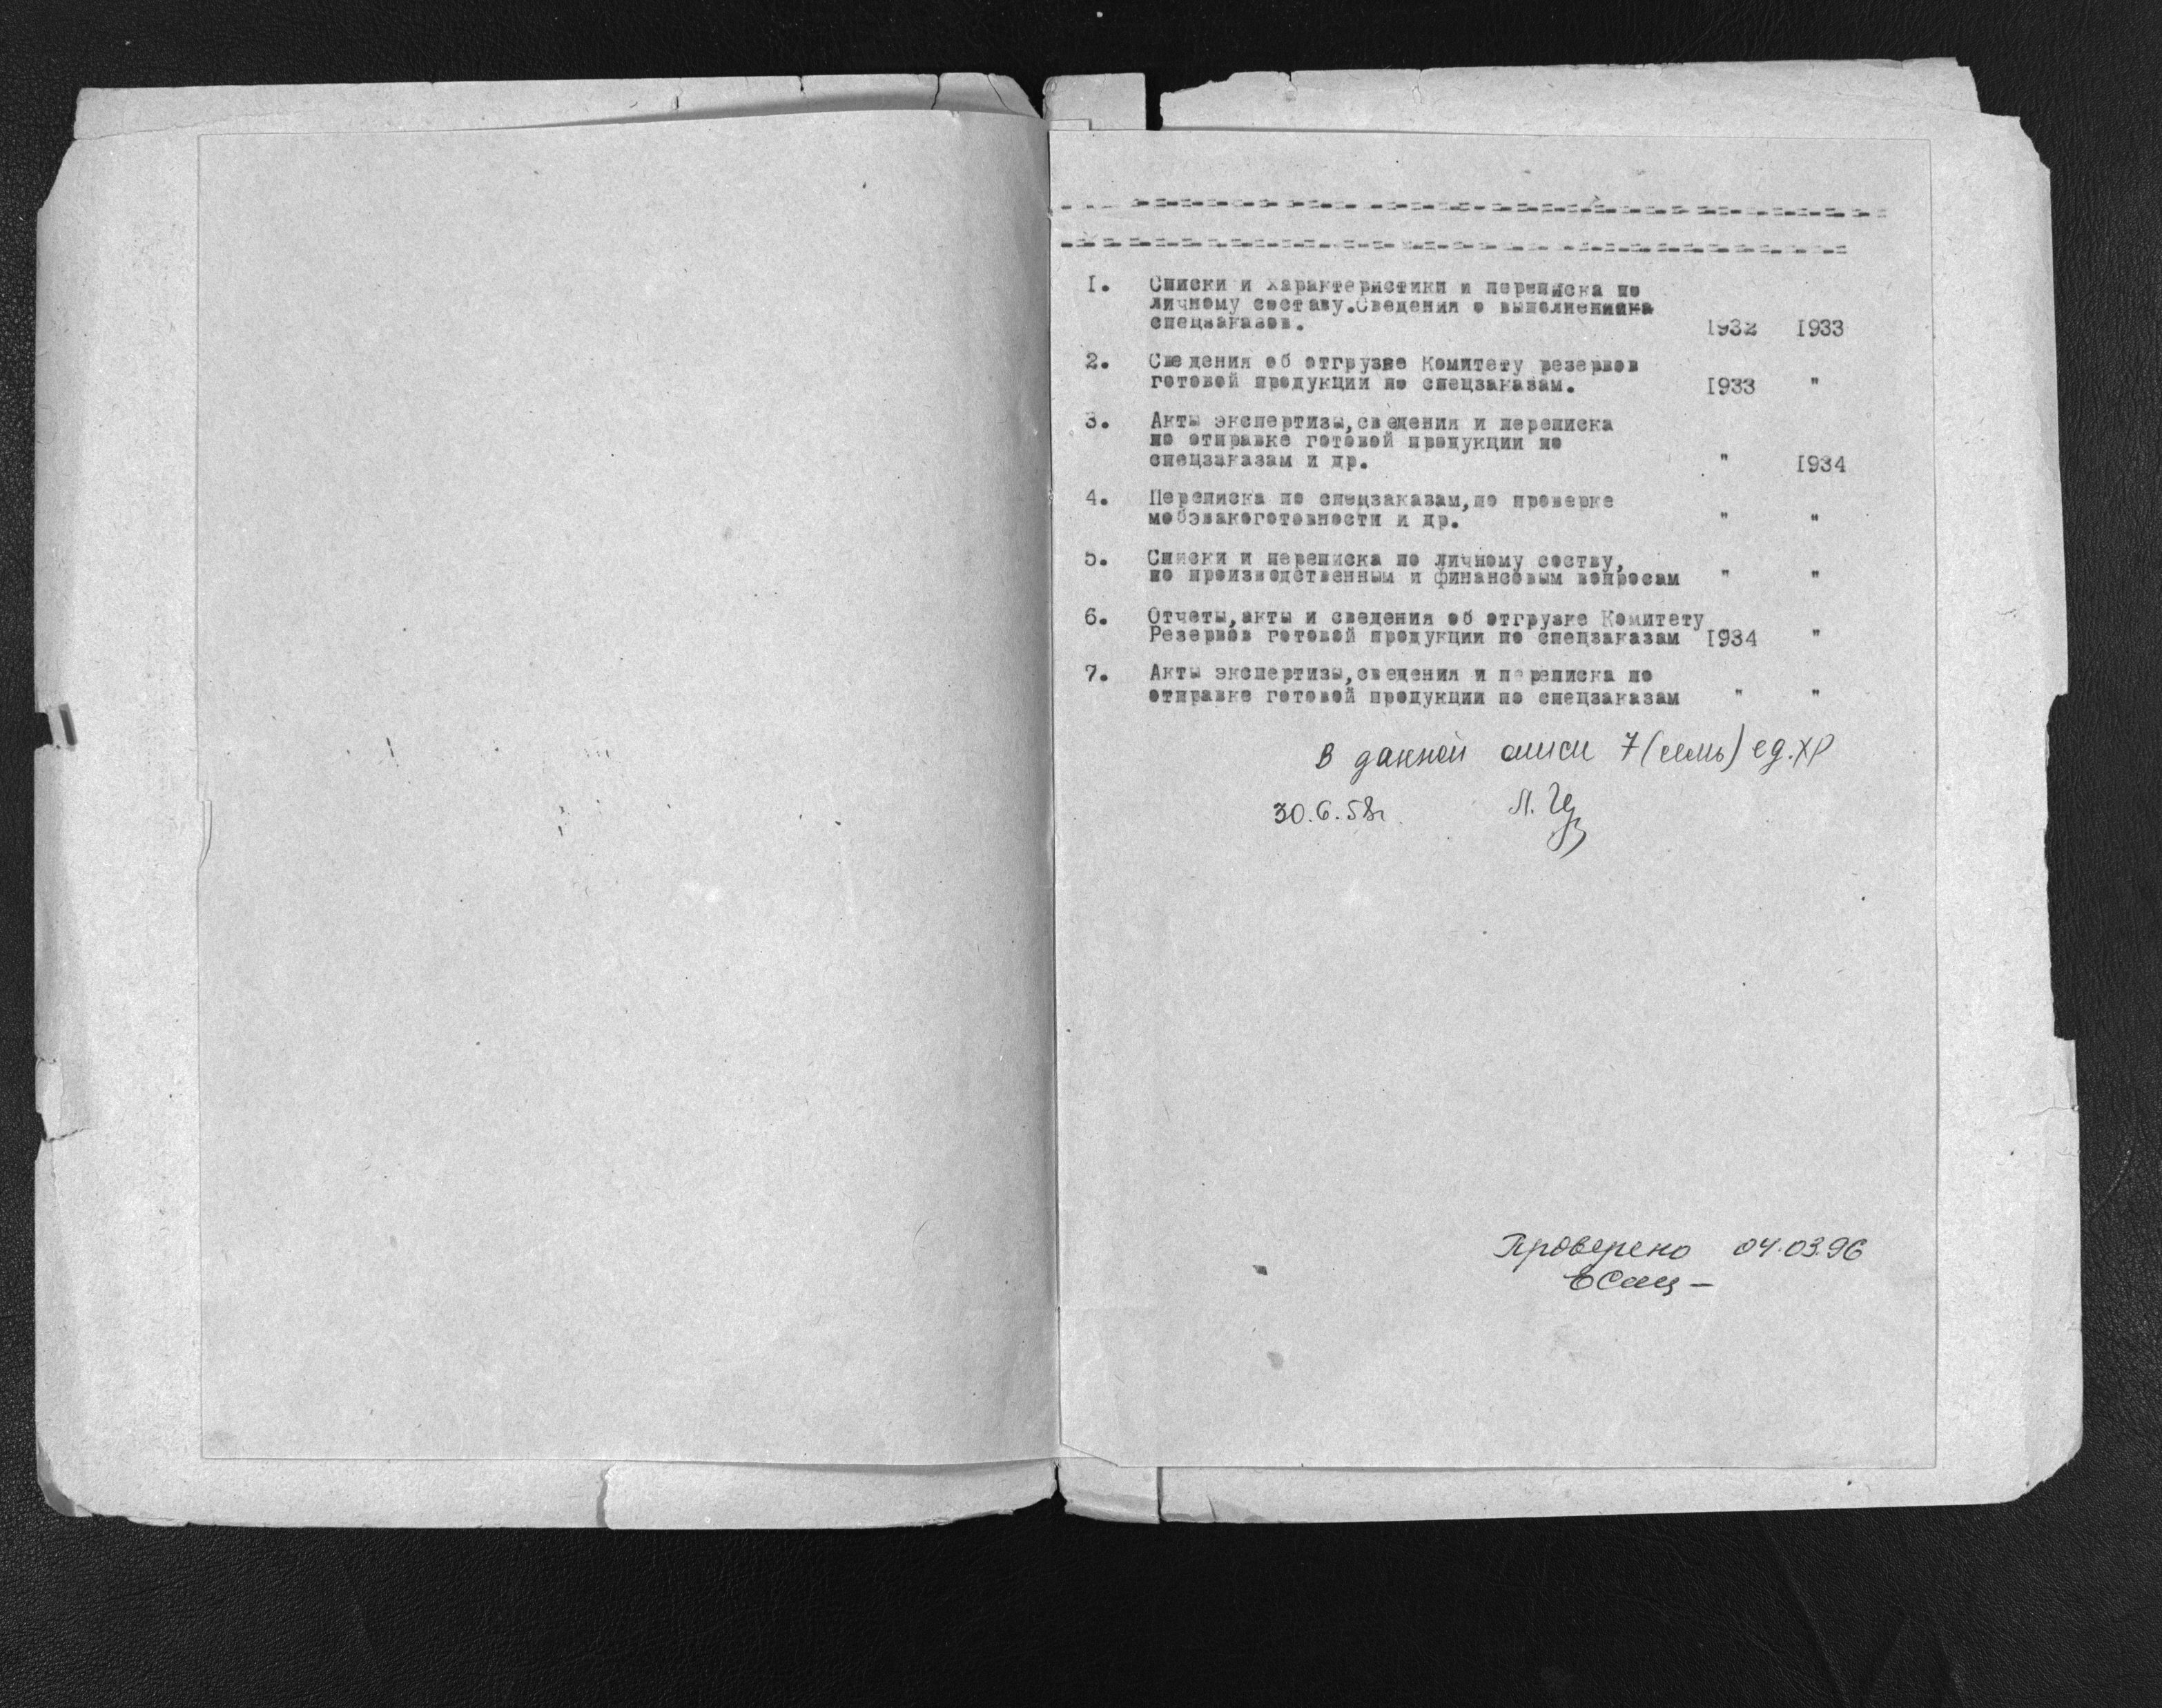 1. Списки и характеристики и переписка по
личному составу.Сведения о выполнениика
спецзаказов. 1932 1933
2. Сведения об отгрузке Комитету резервов
готовой продукции по спецзаказам. 1933 "
3. Акты экспертизы,сведения и переписка
по отправке готовой продукции по
спецзаказам и др. " 1934
4. Переписка по спецзаказам,по проверке
мобэвакоготовности и др. " "
5. Списки и переписка по личному соству,
по производственным и финансовым вопросам " "
6. Отчеты,акты и сведения об отгрузке Комитету
Резервов готовой продукции по спецзаказам 1934 "
7. Акты экспертизы,сведения и переписка по
отправке готовой продукции по спецзаказам " "
В данной описи 7 (семь) ед.хр
30.6.58г
Проверено 04.03.96